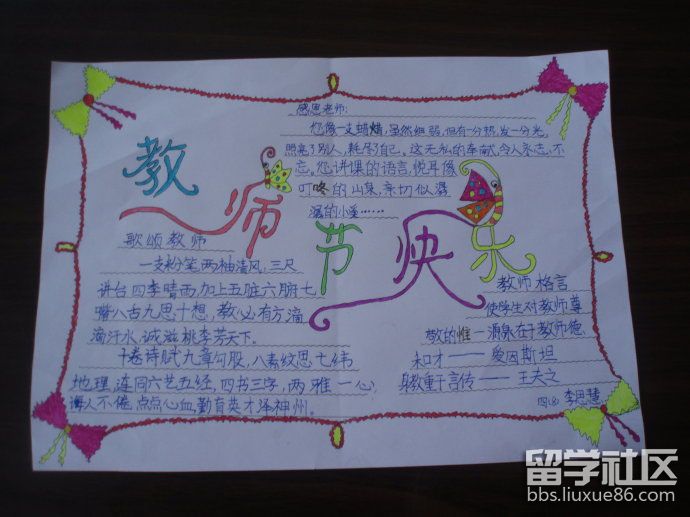 感恩老师:
您像一支蜡烛,虽然细弱,但有一分热,发一分光,
照亮了别人,耗尽了自己。这无私的奉献,令人永志不
忘。您讲课的语言,悦耳像
叮咚的山泉,亲切似潺
潺的小溪……
教师节快乐
歌颂教师
一支粉笔两袖清风,三尺
讲台四季晴雨,加上五脏六腑七
嘴八舌九思十想,教必有方滴
滴汗水,诚滋桃李芳天下。
十卷诗赋九章勾股,八索纹思七纬
地理,连同六艺五经,四书三字,两雅一心
诲人不倦,点点心血,勤育英才泽神州。
教师格言
使学生对教师尊
敬的惟一源泉在于教师德
和才——爱因斯坦
身教重于言传——王夫之
李思慧
留学社区
bbs.liuxue86.com